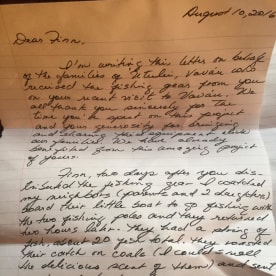 August 10, 2016
Dear Finn,
I'm writing this letter on behalf
of the families of Utulei, Vava'u who
received the fishing gear from you
on your recent visit to Vava'u. We
all thank you sincerely for the
time you've spent on this project
and your generosity for bringing
and sharing this equipment with
our families. We have already
benefited from this amazing project
of yours.
Finn, two days after you dis-
tributed the fishing gear I watched
my neighbors (parents and 2 daughters)
board their little boat to go fishing with
the two fishing poles and they returned
two hours later. They had a string of
fish, about 20 fish total. They roasted
their catch on coals (I could smell
the delicious scent of them) and